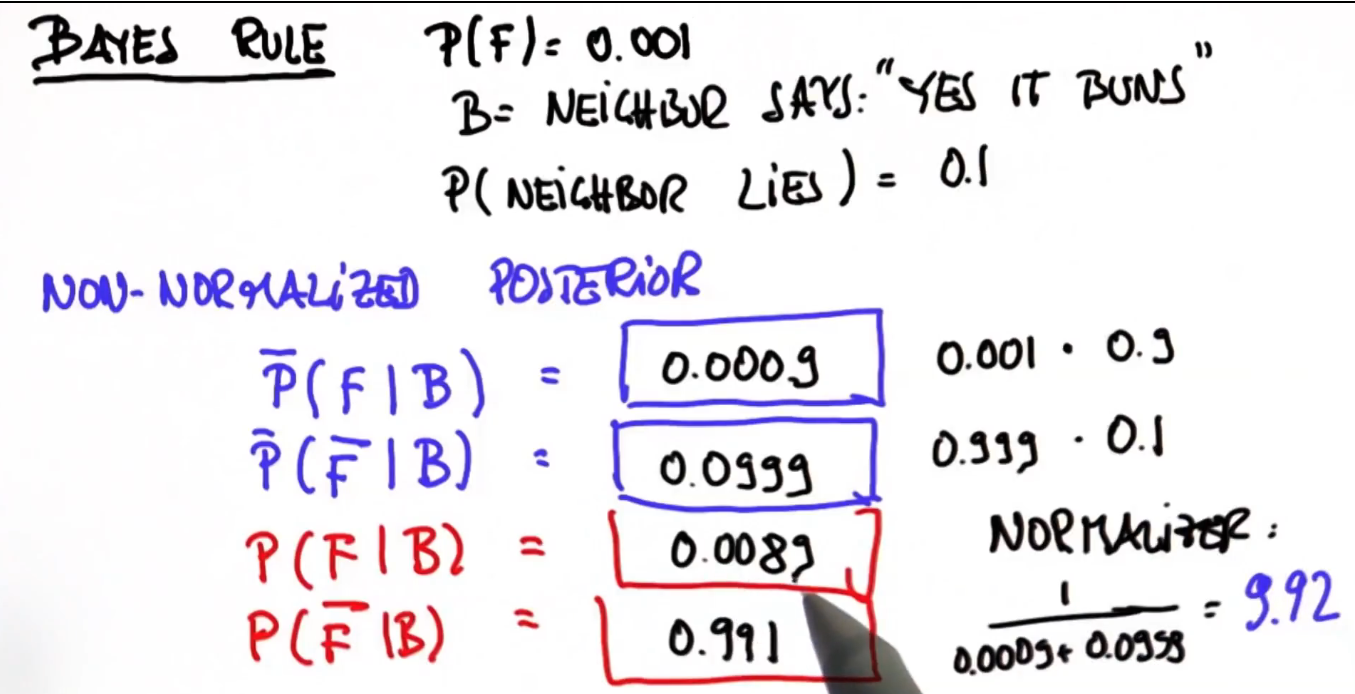 BAYES RULE P(F)= 0.001
B= NEIGHBOR SAYS: "YES IT BUNS"
P( NEIGHBOR LIES ) = 0.1
NON-NORMALIZED POSTERIOR
P̅(F|B) = 0.0009 0.001 · 0.9
P̅(F̅|B) = 0.0999 0.999 · 0.1
P(F|B) = 0.0089 NORMALIZER:
P(F̅|B) = 0.991 1 / 0.0009+ 0.0999 = 9.92